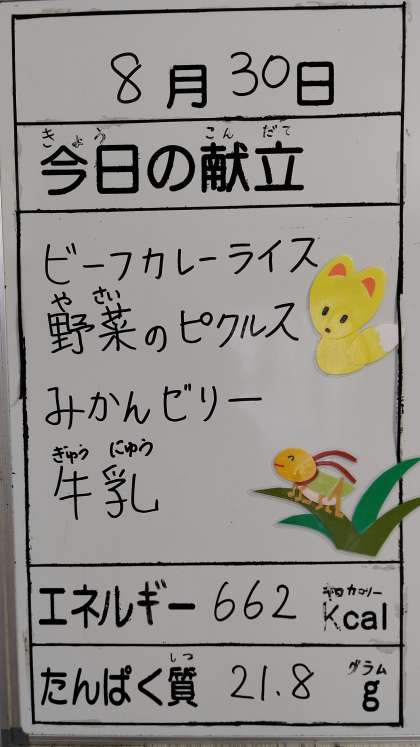 8月30日
きょう こんだて
今日の献立
ビーフカレーライス
やさい
野菜のピクルス
みかんゼリー
ぎゅう にゅう
牛乳
キロカロリー
エネルギー 662 Kcal
しつ グラム
たんぱく質 21.8 g